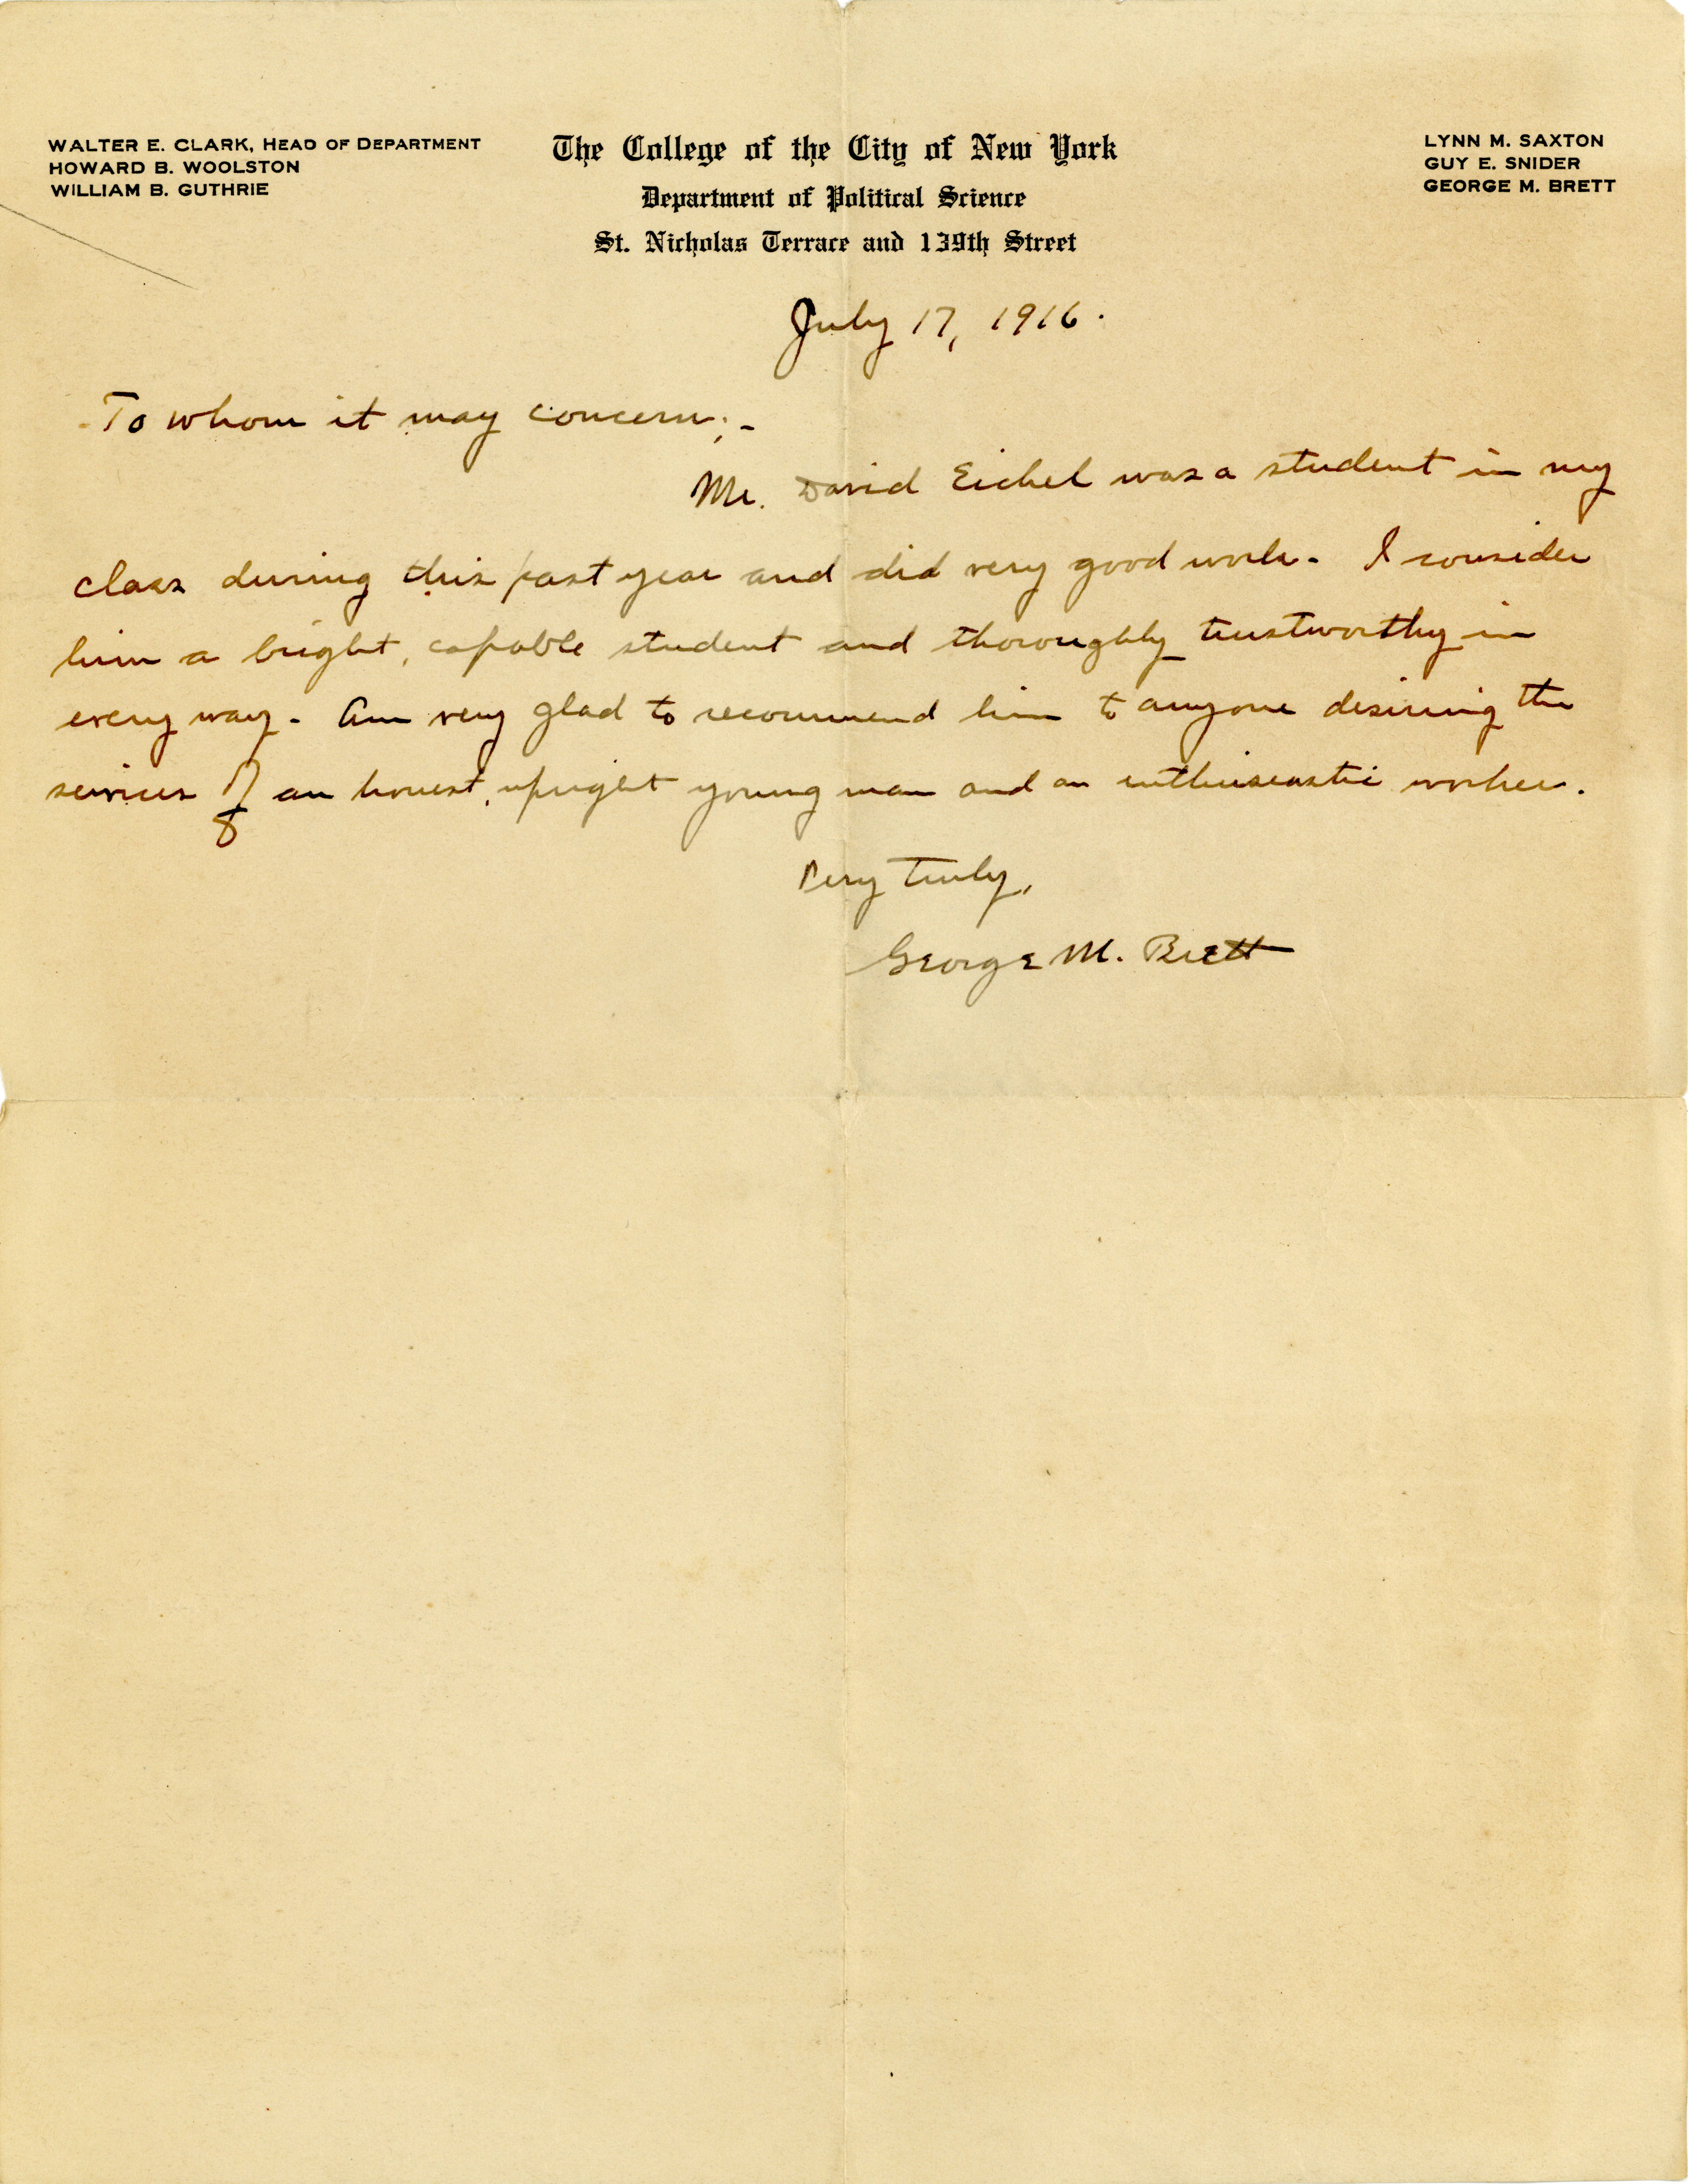 WALTER E. CLARK, HEAD OF DEPARTMENT
HOWARD B. WOOLSTON
WILLIAM B. GUTHRIE
The College of the City of New York
Department of Political Science
St. Nicholas Terrace and 139th Street
LYNN M. SAXTON
GUY E. SNIDER
GEORGE M. BRETT
July 17, 1916.
To whom it may concern;-
Mr. David Eichel was a student in my
class during this past year and did very good work. I consider
him a bright, capable student and thoroughly trustworthy in
every way. Am very glad to recommend him to anyone desiring the
services of an honest, upright young man and an enthusiastic worker.
Very Truly,
George M. Brett